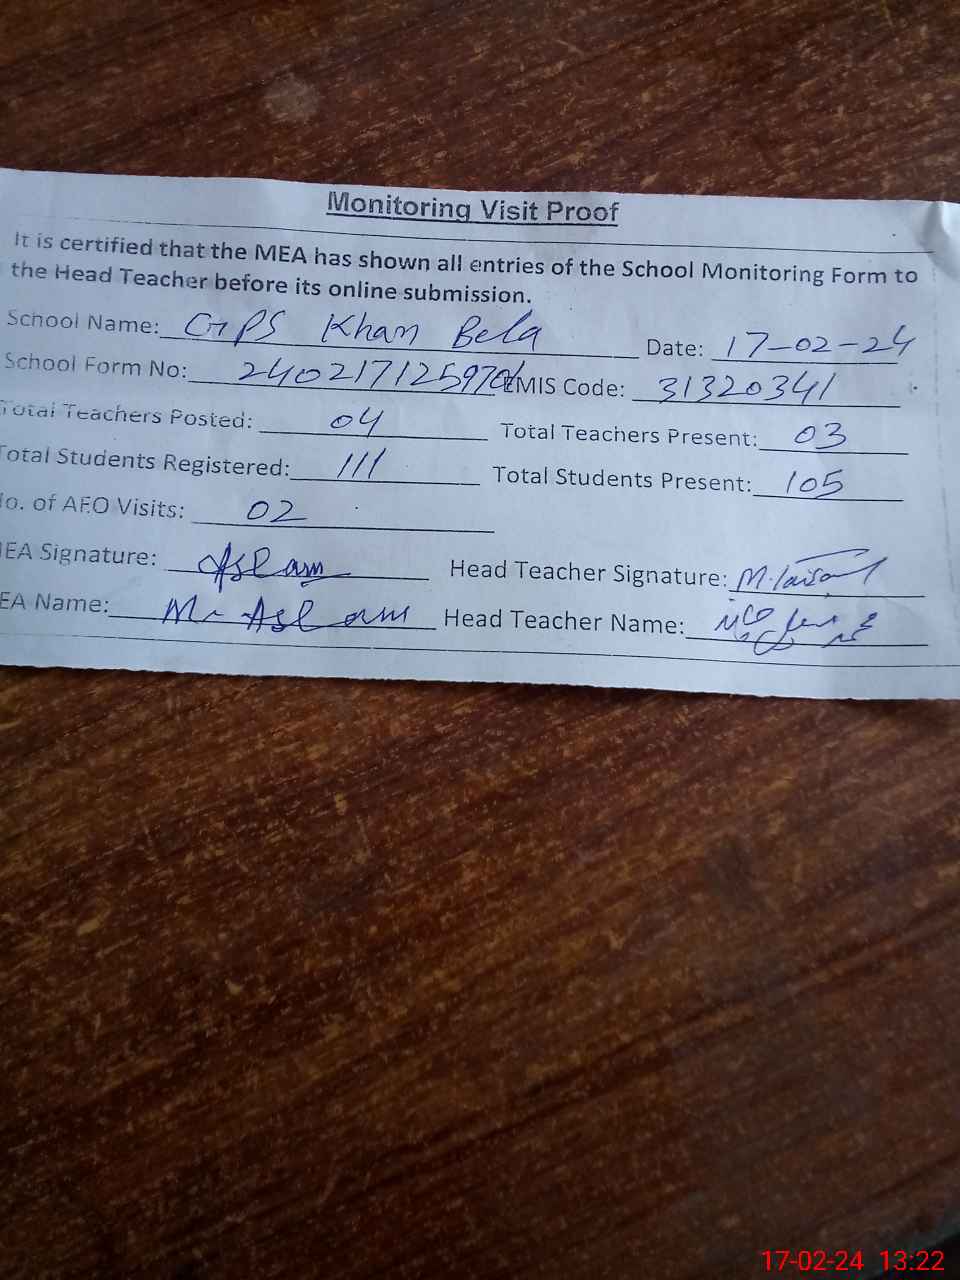 Monitoring Visit Proof
It is certified that the MEA has shown all entries of the School Monitoring Form to
the Head Teacher before its online submission.
School Name: GPS Khan Bela Date: 17-02-24
School Form No: EMIS Code: 31320341
Total Teachers Posted: 04 Total Teachers Present: 03
Total Students Registered: 111 Total Students Present: 105
No. of AEO Visits: 02
MEA Signature: Aslam Head Teacher Signature:
MEA Name: M Aslam Head Teacher Name:
17-02-24 13:22